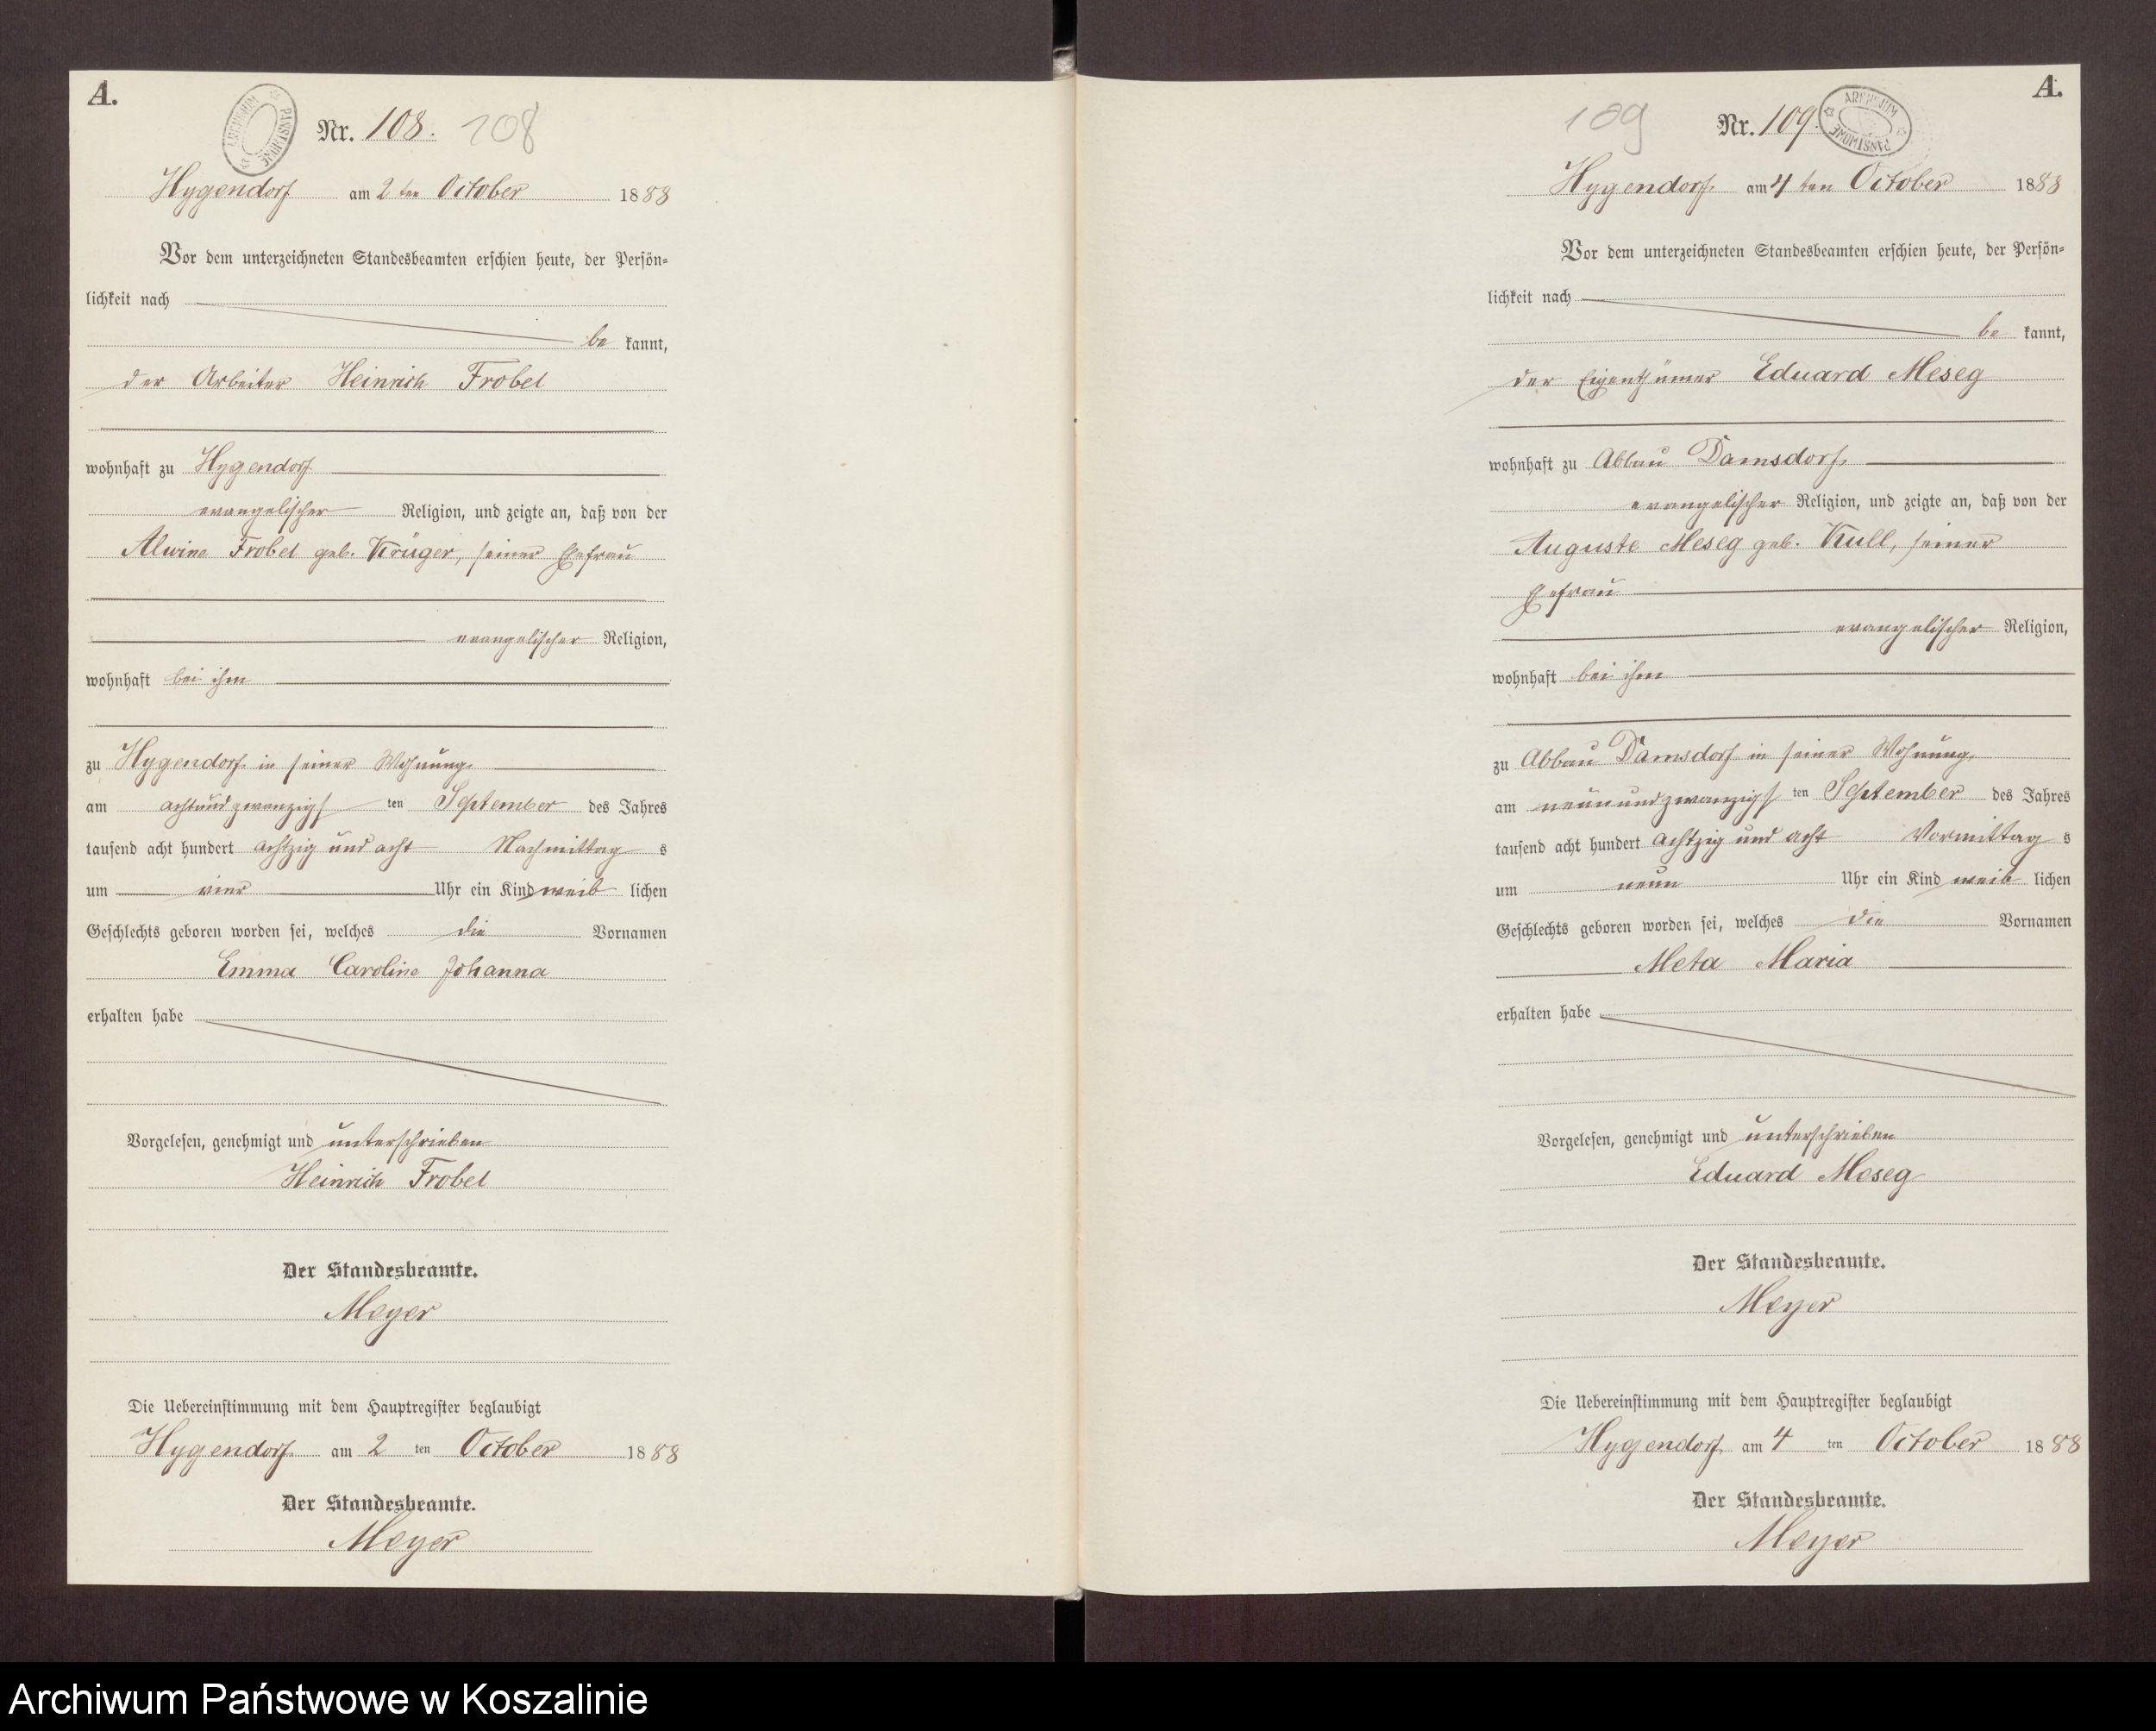 A.
ARCHIWUM PAŃSTWOWE
Nr. 108. 108
Hygendorf am 2 ten October 1888
Vor dem unterzeichneten Standesbeamten erschien heute, der Persön-
lichkeit nach
be kannt,
der Arbeiter Heinrich Frobel
wohnhaft zu Hygendorf
evangelischer Religion, und zeigte an, daß von der
Alwine Frobel geb. Krüger, seiner Ehefrau
evangelischer Religion,
wohnhaft bei ihm
zu Hygendorf in seiner Wohnung
am achtundzwanzigs ten September des Jahres
tausend acht hundert achtzig und acht Nachmittag s
um vier Uhr ein Kind weib lichen
Geschlechts geboren worden sei, welches die Vornamen
Emma Caroline Johanna
erhalten habe
Vorgelesen, genehmigt und unterschrieben
Heinrich Frobel
Der Standesbeamte.
Meyer
Die Uebereinstimmung mit dem Hauptregister beglaubigt
Hygendorf am 2 ten October 1888
Der Standesbeamte.
Meyer
A.
109 Nr. 109.
ARCHIWUM PAŃSTWOWE
Hygendorf am 4 ten October 1888
Vor dem unterzeichneten Standesbeamten erschien heute, der Persön-
lichkeit nach
be kannt,
der Eigenthümer Eduard Meseg
wohnhaft zu Abbau Damsdorf
evangelischer Religion, und zeigte an, daß von der
Auguste Meseg geb. Kull, seiner
Ehefrau
evangelischer Religion,
wohnhaft bei ihm
zu Abbau Damsdorf in seiner Wohnung
am neunundzwanzigs ten September des Jahres
tausend acht hundert achtzig und acht Vormittag s
um neun Uhr ein Kind weib lichen
Geschlechts geboren worden sei, welches die Vornamen
Meta Maria
erhalten habe
Vorgelesen, genehmigt und unterschrieben
Eduard Meseg
Der Standesbeamte.
Meyer
Die Uebereinstimmung mit dem Hauptregister beglaubigt
Hygendorf am 4 ten October 1888
Der Standesbeamte.
Meyer
Archiwum Państwowe w Koszalinie